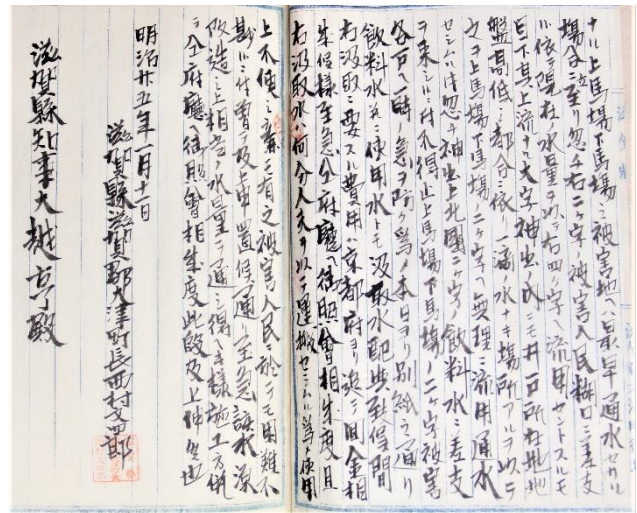 ナル上馬場下馬場ノ被害地ヘハ最早通水セサル
場合ニ立至リ忽チ右二ケ字ノ被害人民糊口ニ差支
依テ現在水量ヲ以テ右四ケ字ヘ流用セントスルモ
目下其上流ナル大字神出ニモ井戸所在地ノ地
盤高低ノ都合ニ依リ一滴水ナキ場所アルヲ以テ
之ヲ上馬場下馬場ノ二ケ字ヘ無理ニ流用通水
セシムル片ハ忽チ神出上北國二ケ字ノ飲料水ニ差支
ヲ来シ候ニ付不得止上馬場下馬場ノ二ケ字被害
各戸ヘ一時ノ急ヲ防ク為メ本日ヨリ別紙之通リ
飲料水并ニ使用水トモ汲取水配与致候間
右汲取ニ要スル費用ハ京都府ヨリ速ニ出金相
成候様至急仝府廳ヘ御照會相成度且
右汲取水ハ何分人夫ヲ以テ運搬セシムル為メ使用
上不便ニ有之被害人民ニ於テモ困難不
尠ニ付曽テ及上申置候通リ至急疎水源
改造之上相当ノ水量ヲ通シ得ヘキ様施工方併
テ仝府廳ヘ御照會相成度此段及上伸候也
明治廿五年一月十二日
滋賀縣滋賀郡大津町長西村文四郎
滋賀縣知事大越亨殿